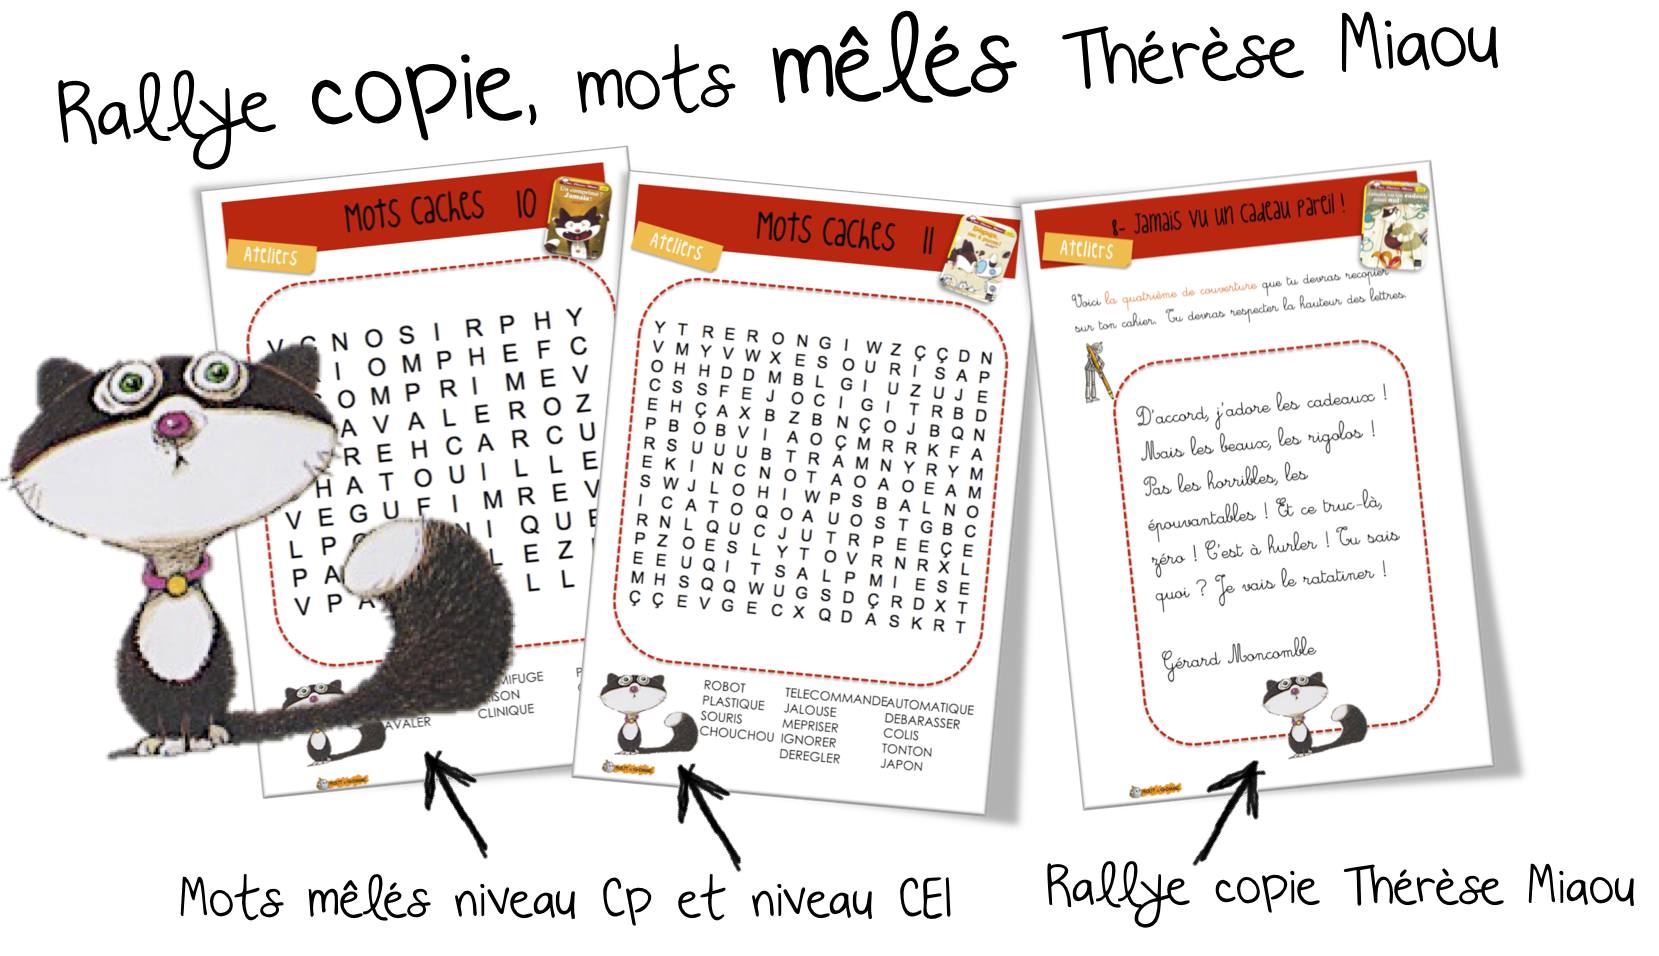 Rallye copie, mots mêlés Thérèse Miaou
Mots cachés 10
Ateliers
N O S I R P H Y
I O M P H E F C
O M P R I M E V
A V A L E R O Z
R E H C A R C U
H A T O U I L L E
V E G U F I M R E V
L P I Q U E
P A L E Z
V P A L L
AVALER
CLINIQUE
Mots cachés 11
Ateliers
Y T R E R O N G I W Z Ç Ç D N
V M Y V W X E S O U R I S A P
O H H D D M B L G I U Z U J E
C S S F E J O C I G I T R B D
E H Ç A X B Z B N Ç O J B Q N
P B O B V I A O Ç M R R K F A
R S U U U B T R A M N Y R Y M
E K I N C N O T A O A O E A M
S W J L O H I W P S B A L N O
I C A T O Q O A U O S T G B C
R N L Q U C J U T R P E E Ç E
P Z O E S L Y T O V R N R X L
E E U Q I T S A L P M I E S E
M H S Q Q W U G S D Ç R D X T
Ç Ç E V G E C X Q D A S K R T
ROBOT
PLASTIQUE
SOURIS
CHOUCHOU
TELECOMMANDE
JALOUSE
MEPRISER
IGNORER
DEREGLER
AUTOMATIQUE
DEBARASSER
COLIS
TONTON
JAPON
8- Jamais vu un cadeau pareil !
Ateliers
Voici la quatrième de couverture que tu devras recopier
sur ton cahier. Tu devras respecter la hauteur des lettres.
D'accord, j'adore les cadeaux !
Mais les beaux, les rigolos !
Pas les horribles, les
épouvantables ! Et ce truc-là,
zéro ! C'est à hurler ! Tu sais
quoi ? Je vais le ratatiner !
Gérard Moncomble
Mots mêlés niveau Cp et niveau CE1
Rallye copie Thérèse Miaou